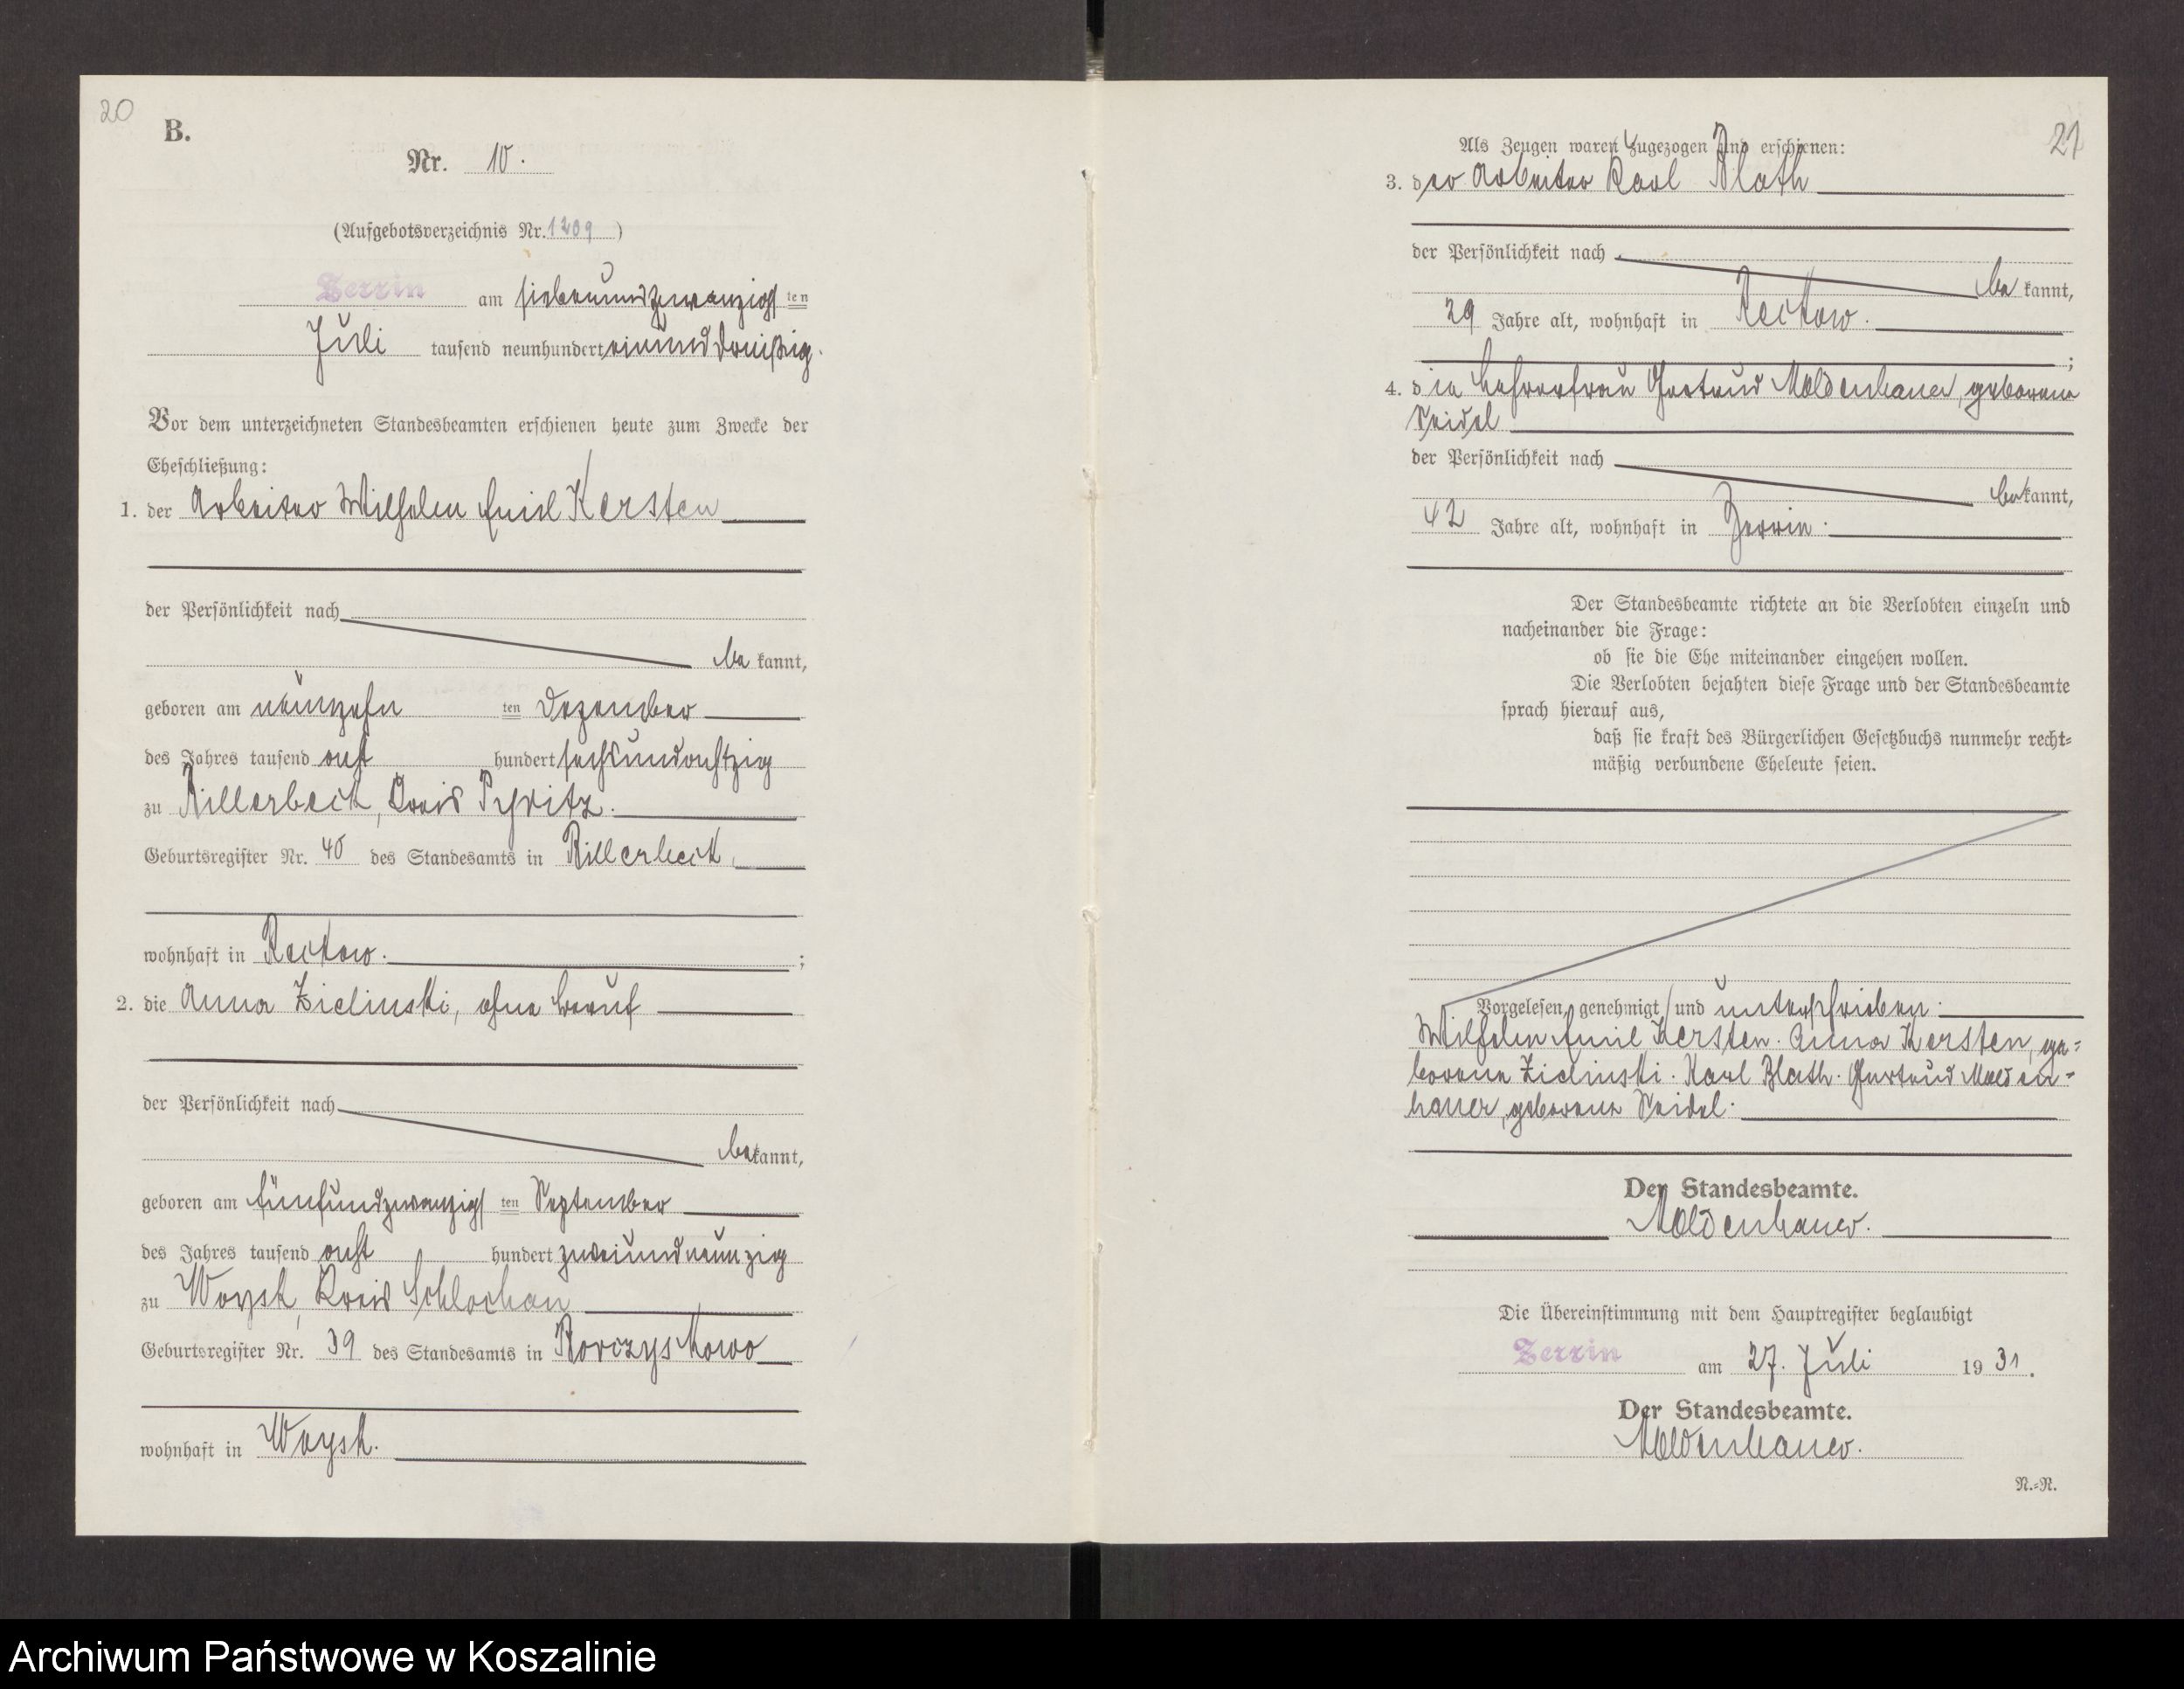 20
B.
Nr. 10.
(Aufgebotsverzeichnis Nr. 1209)
Zerrin am siebenundzwanzigsten
Juli tausend neunhundert einunddreißig.
Vor dem unterzeichneten Standesbeamten erschienen heute zum Zwecke der
Eheschließung:
1. der Arbeiter Wilhelm Emil Kersten
der Persönlichkeit nach
be kannt,
geboren am neunzehn ten Dezember
des Jahres tausend acht hundert sechsundachtzig
zu Billerbeck, Kreis Pyritz.
Geburtsregister Nr. 40 des Standesamts in Billerbeck,
wohnhaft in Reckow. ;
2. die Anna Zielinski, ohne Beruf
der Persönlichkeit nach
be kannt,
geboren am fünfundzwanzigs ten September
des Jahres tausend acht hundert zweiundneunzig
zu Woysk, Kreis Schlochau
Geburtsregister Nr. 39 des Standesamts in Borczyskowo
wohnhaft in Woysk.
21
Als Zeugen waren zugezogen und erschienen:
3. der Arbeiter Karl Blath
der Persönlichkeit nach
be kannt,
29 Jahre alt, wohnhaft in Reckow.
;
4. die Lehrerfrau Gertrud Moldenhauer, geborene
Seidel
der Persönlichkeit nach
be kannt,
42 Jahre alt, wohnhaft in Zerrin.
Der Standesbeamte richtete an die Verlobten einzeln und
nacheinander die Frage:
ob sie die Ehe miteinander eingehen wollen.
Die Verlobten bejahten diese Frage und der Standesbeamte
sprach hierauf aus,
daß sie kraft des Bürgerlichen Gesetzbuchs nunmehr recht-
mäßig verbundene Eheleute seien.
Vorgelesen, genehmigt und unterschrieben.
Wilhelm Emil Kersten. Anna Kersten, ge-
borene Zielinski. Karl Blath. Gertrud Molden-
hauer, geborene Seidel.
Der Standesbeamte.
Moldenhauer.
Die Übereinstimmung mit dem Hauptregister beglaubigt
Zerrin am 27. Juli 1931.
Der Standesbeamte.
Moldenhauer.
N.-N.
Archiwum Państwowe w Koszalinie